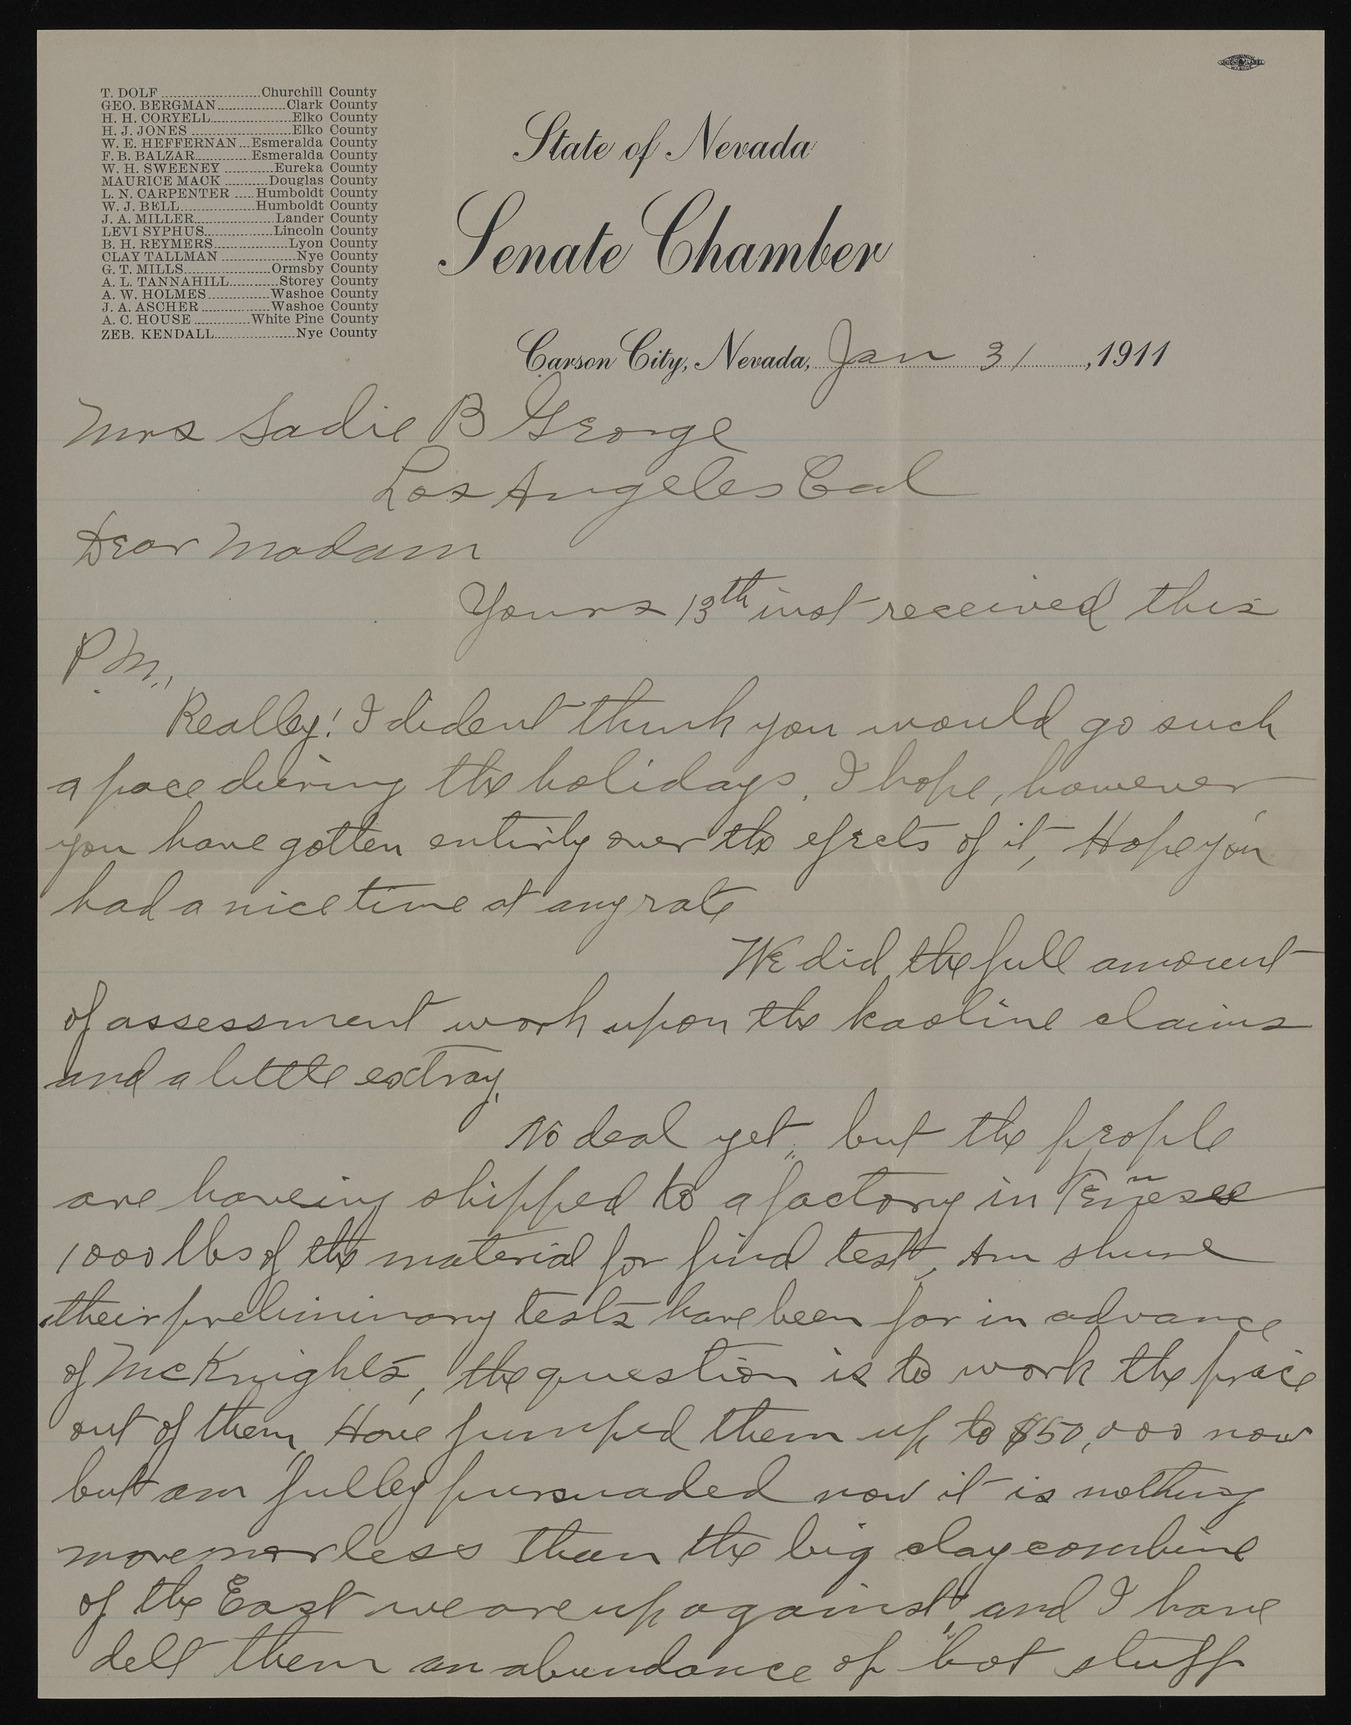 T. DOLF ........ Churchill County
GEO. BERGMAN ........ Clark County
H. H. CORYELL ........ Elko County
H. J. JONES ........ Elko County
W. E. HEFFERNAN ... Esmeralda County
F. B. BALZAR ........ Esmeralda County
W. H. SWEENEY ........ Eureka County
MAURICE MACK ........ Douglas County
L. N. CARPENTER .... Humboldt County
W. J. BELL ........ Humboldt County
J. A. MILLER ........ Lander County
LEVI SYPHUS ........ Lincoln County
B. H. REYMERS ........ Lyon County
CLAY TALLMAN ........ Nye County
G. T. MILLS ........ Ormsby County
A. L. TANNAHILL ........ Storey County
A. W. HOLMES ........ Washoe County
J. A. ASCHER ........ Washoe County
A. C. HOUSE ........ White Pine County
ZEB. KENDALL ........ Nye County
State of Nevada
Senate Chamber
Carson City, Nevada, Jan 31, 1911
Mrs Sadie B George
Los Angeles Cal
Dear Madam
Yours 13th inst received this
P.M.,
Really! I dident think you would go such
a pace during the holidays. I hope, however
you have gotten entirly over the efects of it, Hope you
had a nice time at any rate
We did the full amount
of assessment work upon the kaoline claims
and a little extray.
No deal yet, but the people
are haveing shipped to a factory in Tennesee
1000 lbs of the material for find test, Am shure
their preliminary tests have been far in advance
of McKnights, the question is to work the price
out of them, Have jumped them up to $50,000 now
but am fulley pursuaded now it is nothing
more nor less than the big clay combine
of the East we are up against, and I have
delt them an abundance of "hot stuff